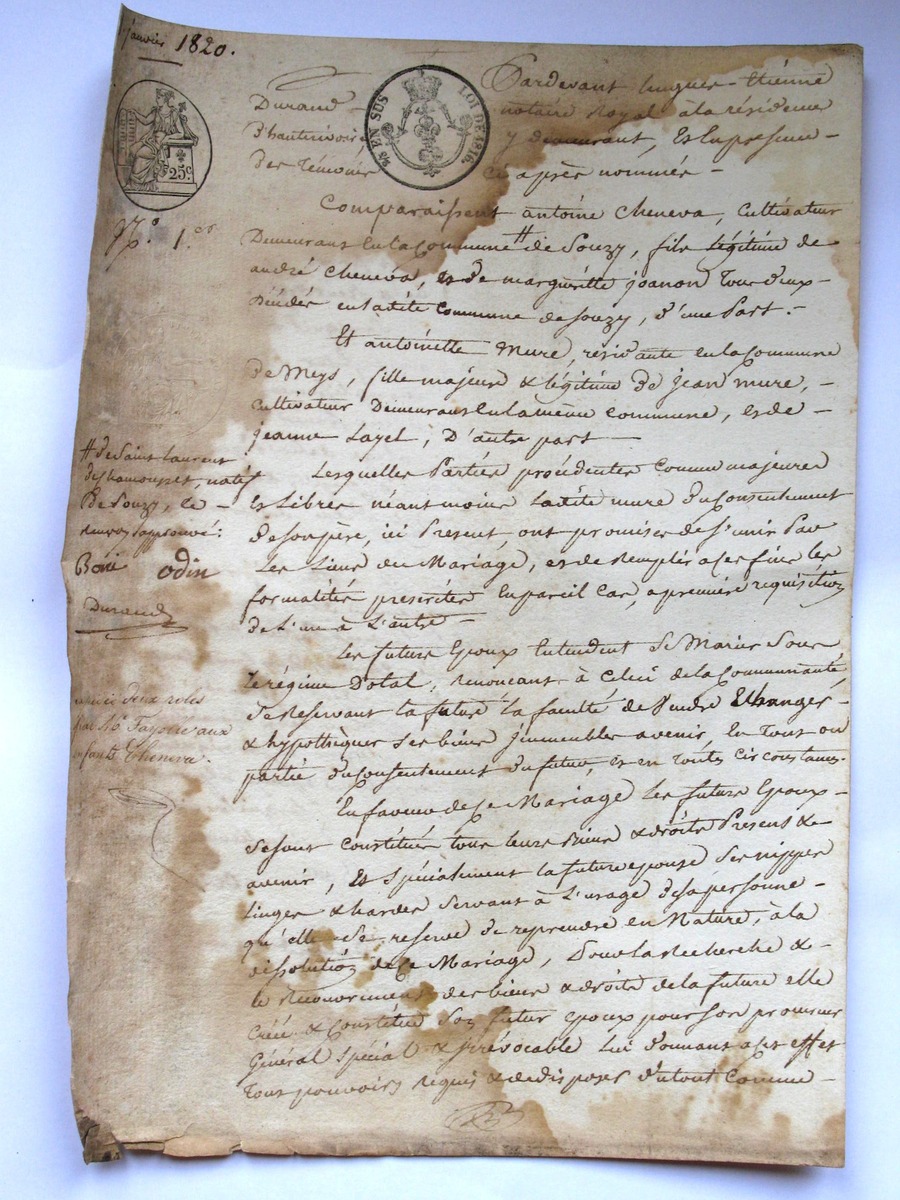 janvier 1820.
25 EN SUS LOI DE 1816.
25c.
Pardevant hugues Etienne
Durand notaire Royal à la résidence
D'hauterivoir y demeurant, Et En presence
Des Témoins Ci après nommés
Comparaissent antoine Cheneva, Cultivateur
Demeurant En la Commune # de Souzy, fils légitime de
andré Cheneva, et de margueritte joanon Tous deux
décédés en ladite Commune de Souzy, d'une Part.
Et antoinette Mure, résidante en la Commune
de Meys, fille majeure & légitime de jean mure,
Cultivateur Demeurant En la même Commune, et de
jeanne Layel, D'autre part
Lesquelles Parties procédentes Comme majeures
Et Libres néantmoins Ladite mure du Consentement
de son père, ici Present, ont promises de S'unir Par
Les Liens du Mariage, et de Remplir a ces fins les
formalités prescrites En pareil Cas, a première requisition
de L'un à L'autre
Les future Epoux Entendent Se Marier Sous
le régime Dotal, renonceant à Celui de la Communauté
Se Reservant la future la faculté de Vendre Echanger
& hypothèquer Ses biens jmmeubles avenir, En Tout ou
partie du Consentement du futur, et en Toutes Circonstances.
En faveur de Ce Mariage Les future Epoux
Se sont Constitués tous leurs Biens & droits Present &
avenir, Et Spécialement la future epouse Ses nippes
Linges & hardes Servant à L'usage de sa personne
qu'elle Se reserve de reprendre en Nature, à la
dissolution de Ce Mariage, Pour la Recherche &
le Recouvrement des biens & droits de la future elle
Créé & Constitue Son futur Epoux pour Son procureur
Général Spécial & jrrévocable Lui donnant a cet effet
Tous pouvoirs Requis & de disposer du tout Comme
# de Saint Laurent
de Chamousset, natif
De Souzy, le
Renvoi approuvé.
Boni odin
Durand
deux roles
par Me Fayolle aux
enfants Cheneva.